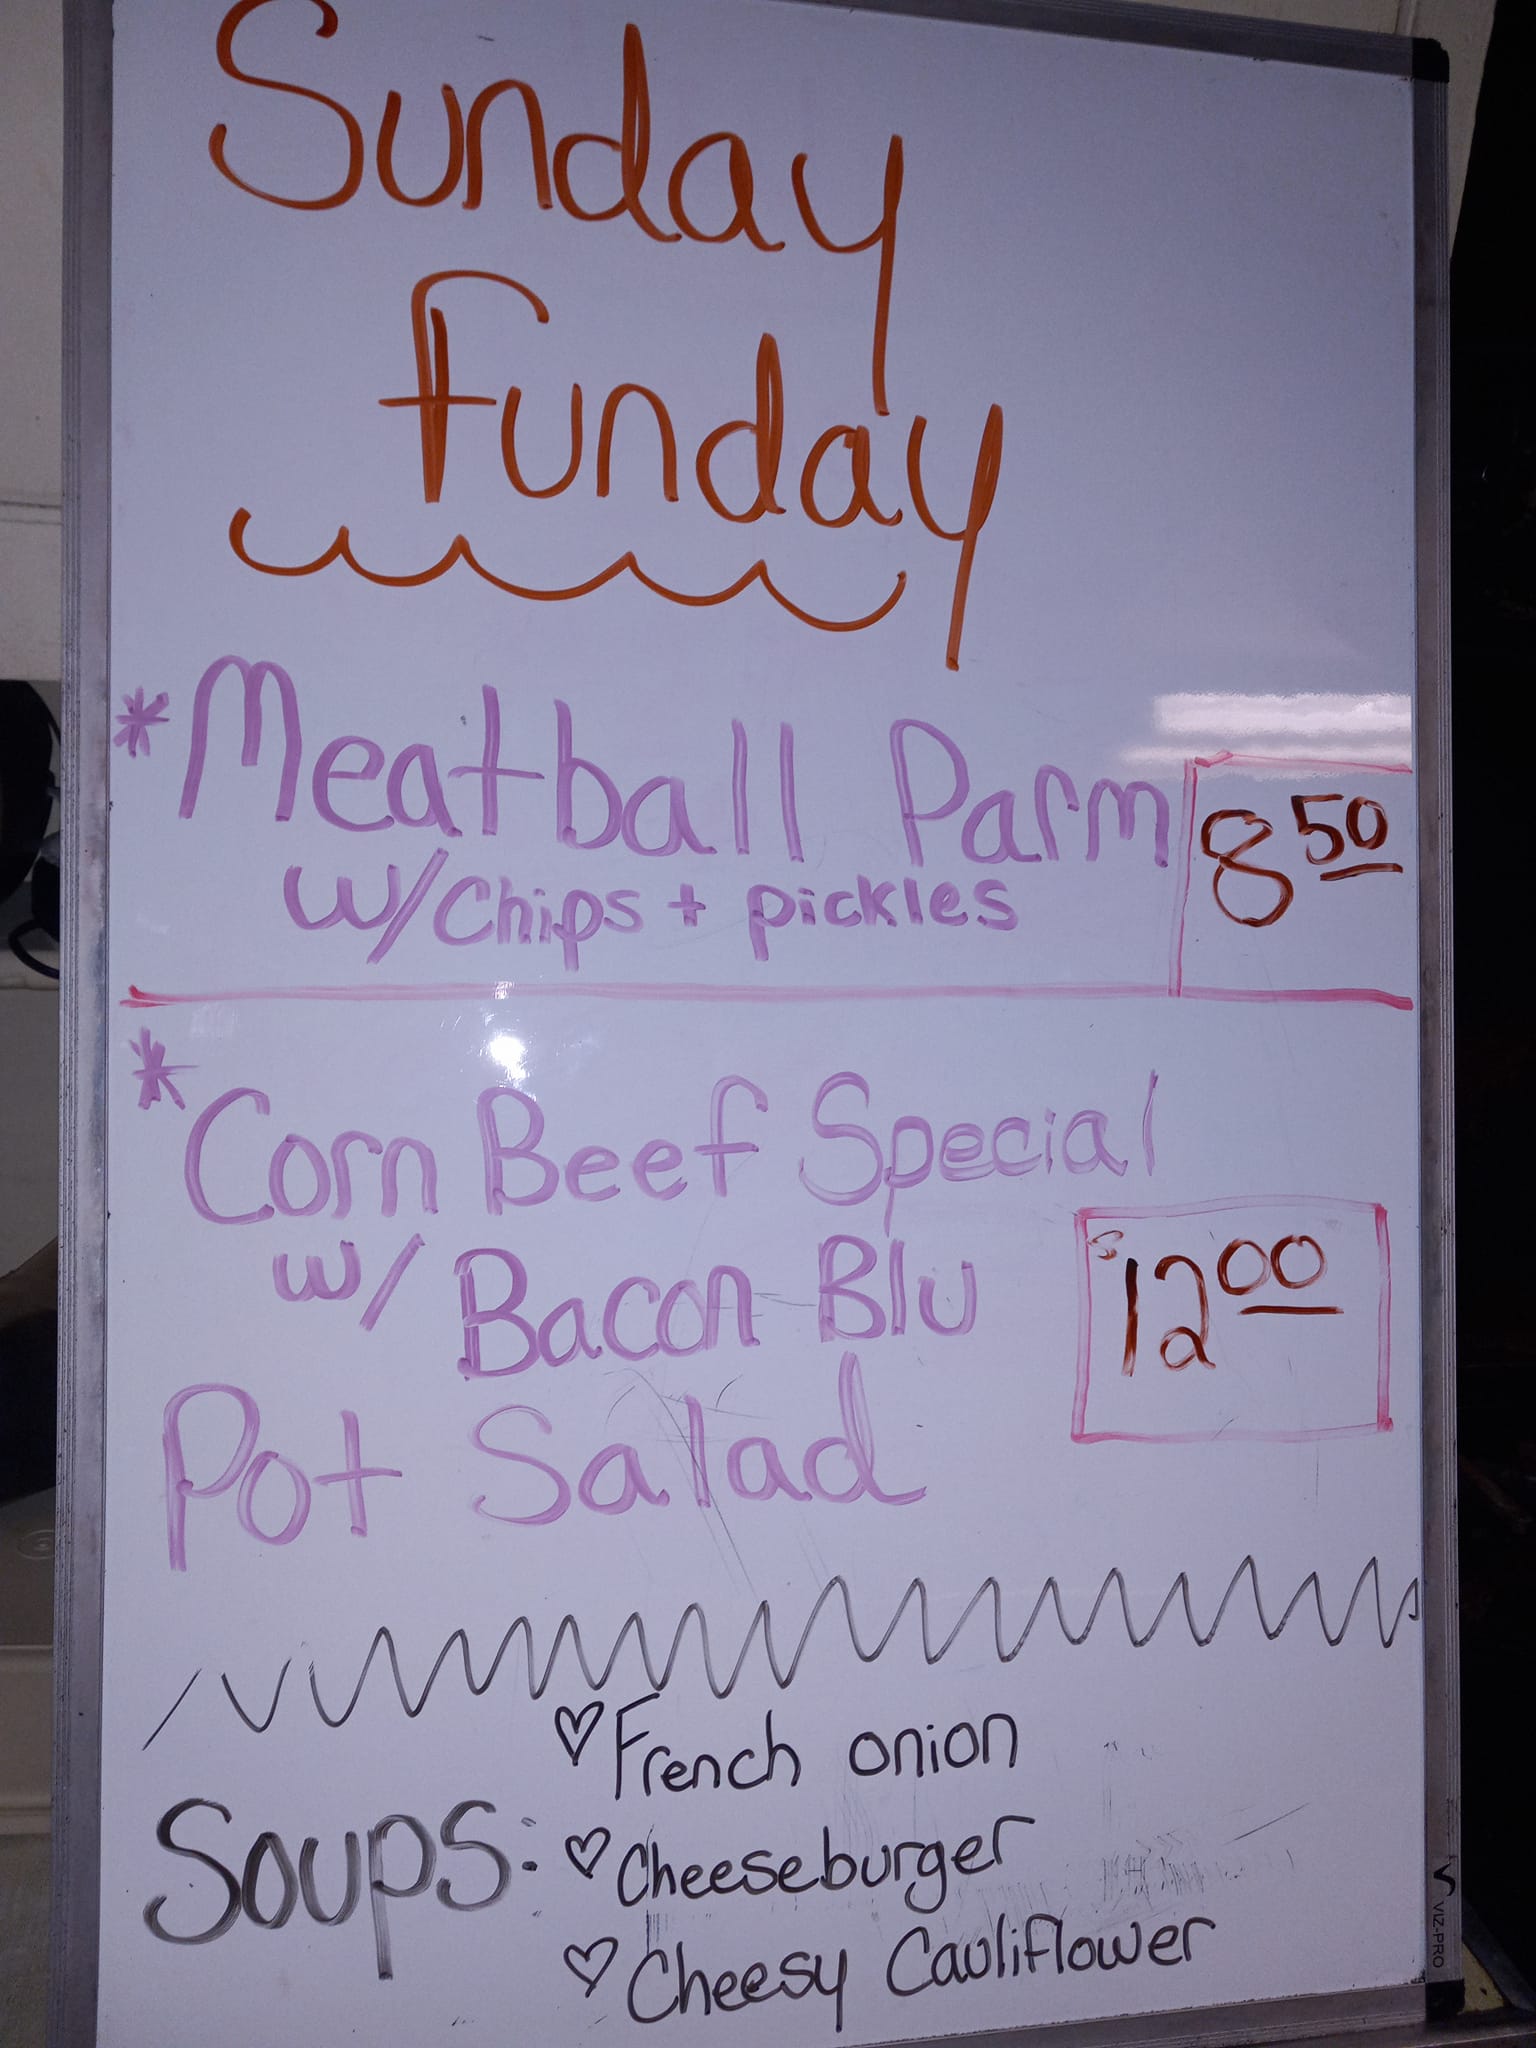 Sunday
Funday
*Meatball Parm 8 50
w/chips + pickles
*Corn Beef Special
w/ Bacon Blu $12 00
Pot Salad
Soups: ♡French onion
♡Cheeseburger
♡Cheesy Cauliflower
VIZ-PRO